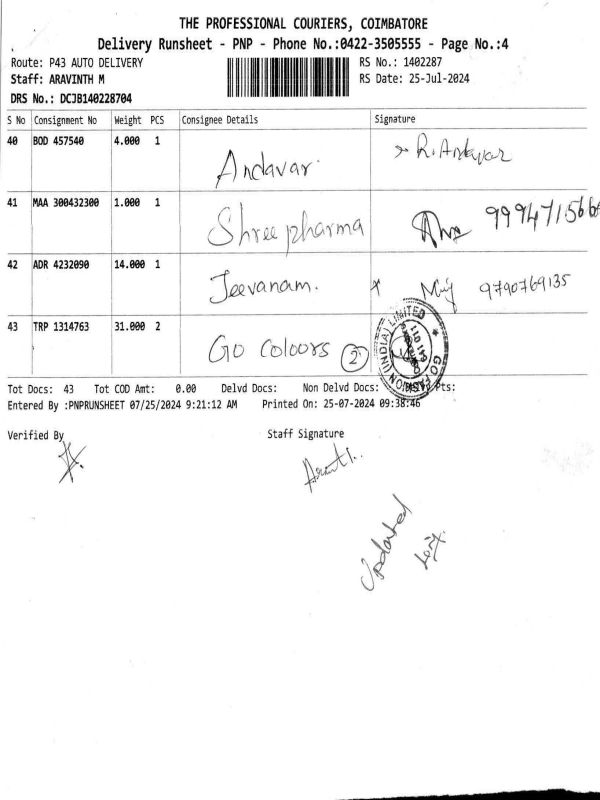 THE PROFESSIONAL COURIERS, COIMBATORE
Delivery Runsheet - PNP - Phone No.:0422-3505555 - Page No.:4
Route: P43 AUTO DELIVERY RS No.: 1402287
Staff: ARAVINTH M RS Date: 25-Jul-2024
DRS No.: DCJB140228704
S No Consignment No Weight PCS Consignee Details Signature
40 BOD 457540 4.000 1 Andavar. R. Andavar
41 MAA 300432300 1.000 1 Shree pharma
42 ADR 4232090 14.000 1 Jeevanam. 9790769135
43 TRP 1314763 31.000 2 Go Coloors 2 GO FASHION (INDIA) LIMITED 641 011
Tot Docs: 43 Tot COD Amt: 0.00 Delvd Docs: Non Delvd Docs: Pts:
Entered By :PNPRUNSHEET 07/25/2024 9:21:12 AM Printed On: 25-07-2024 09:38:46
Verified By Staff Signature
Updated